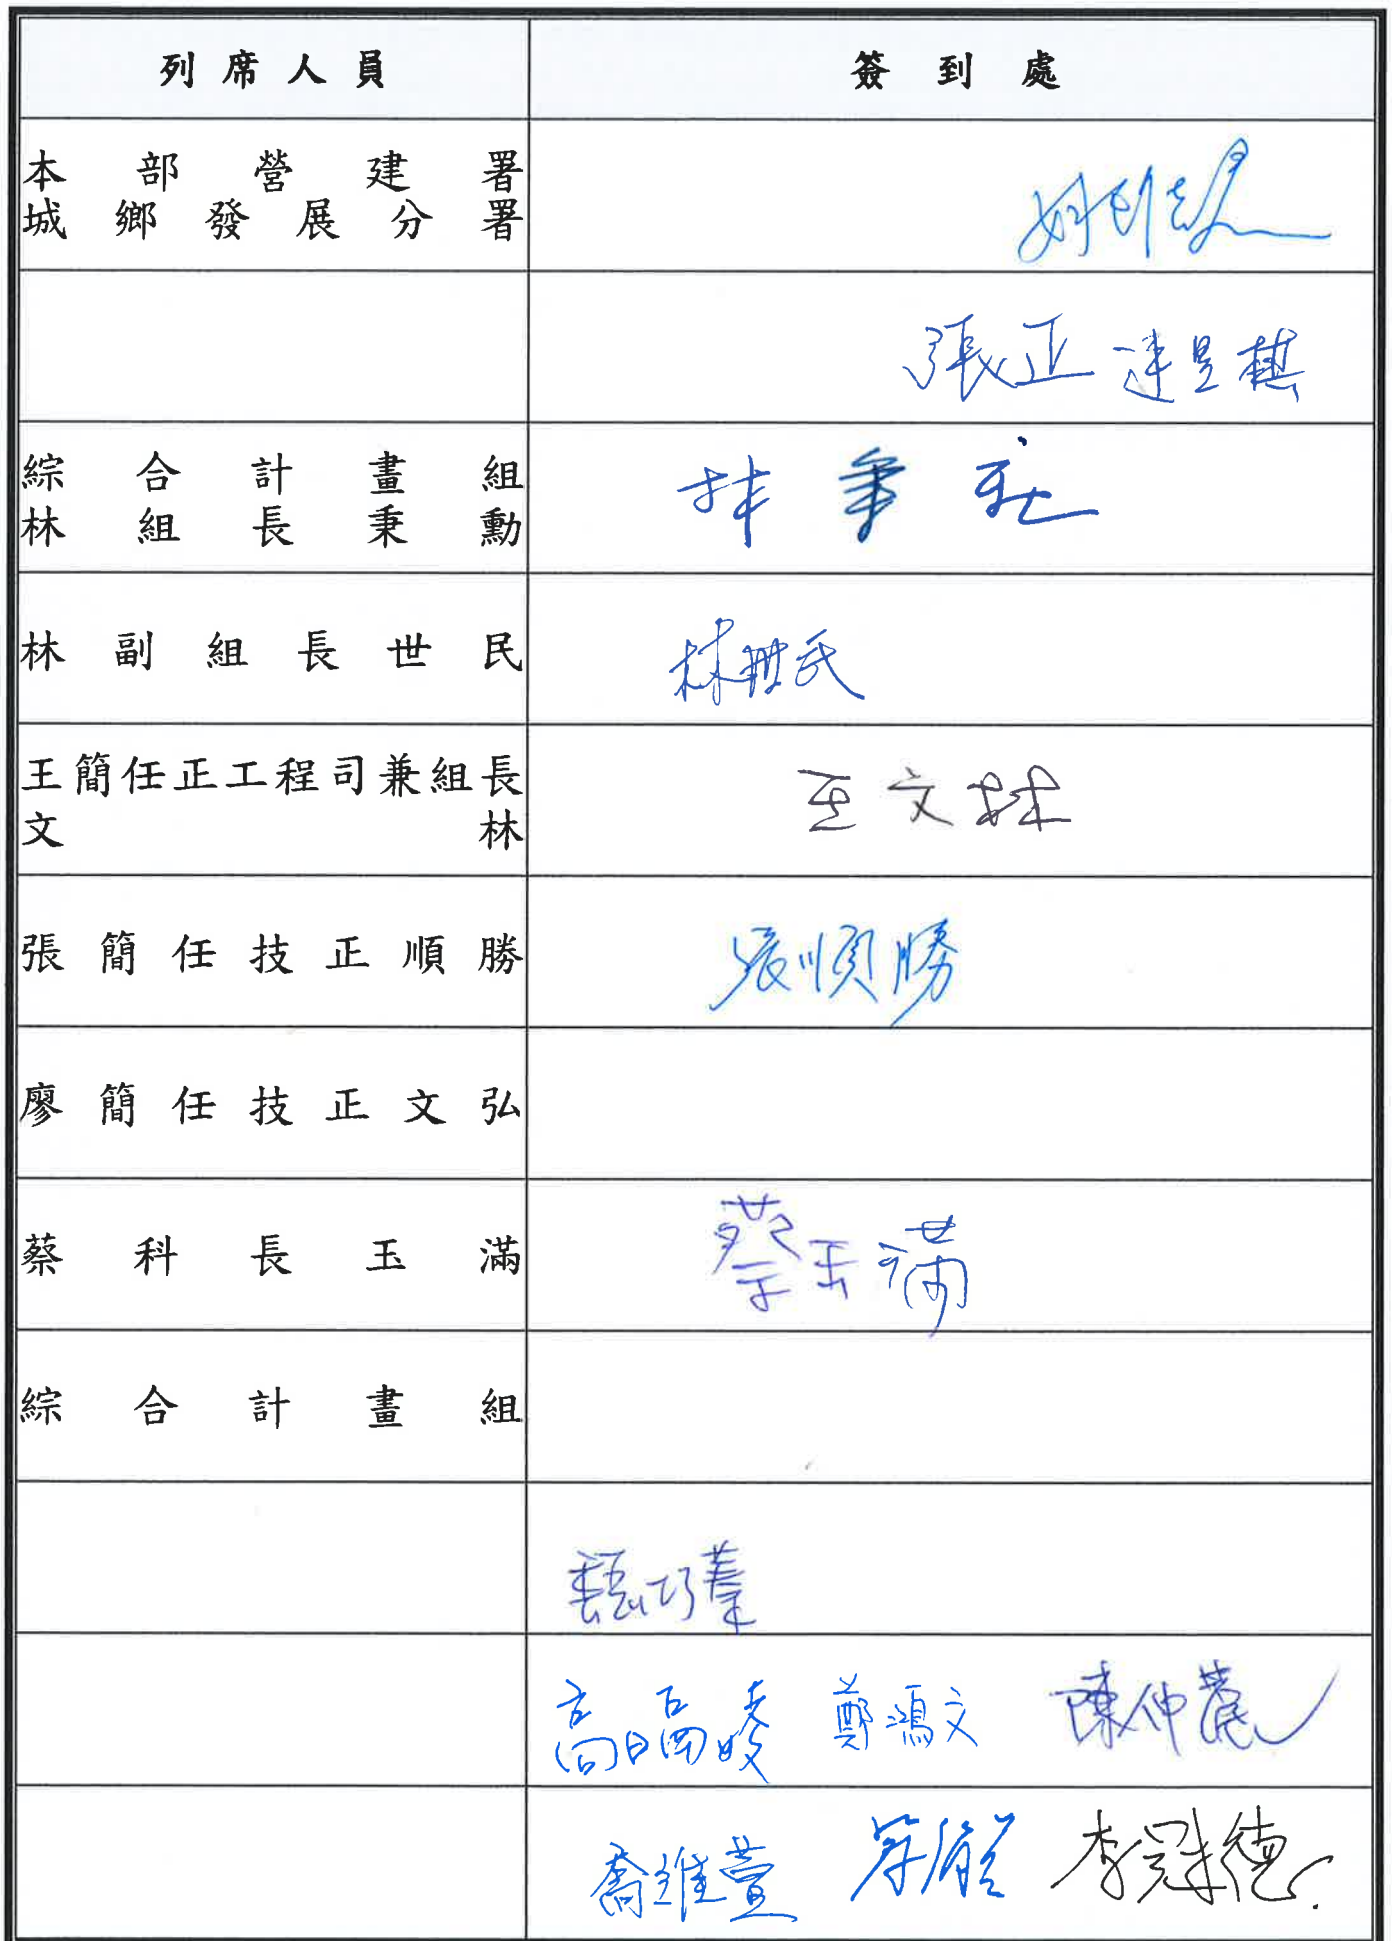 列席人員 簽到處
本部營建署
城鄉發展分署
張正
綜合計畫組
林組長秉勳 林秉
林副組長世民 林世民
王簡任正工程司兼組長
文林 王文林
張簡任技正順勝 張順勝
廖簡任技正文弘
蔡科長玉滿 蔡玉滿
綜合計畫組
甄巧蓁
鄭鴻文
喬維萱 李冠德